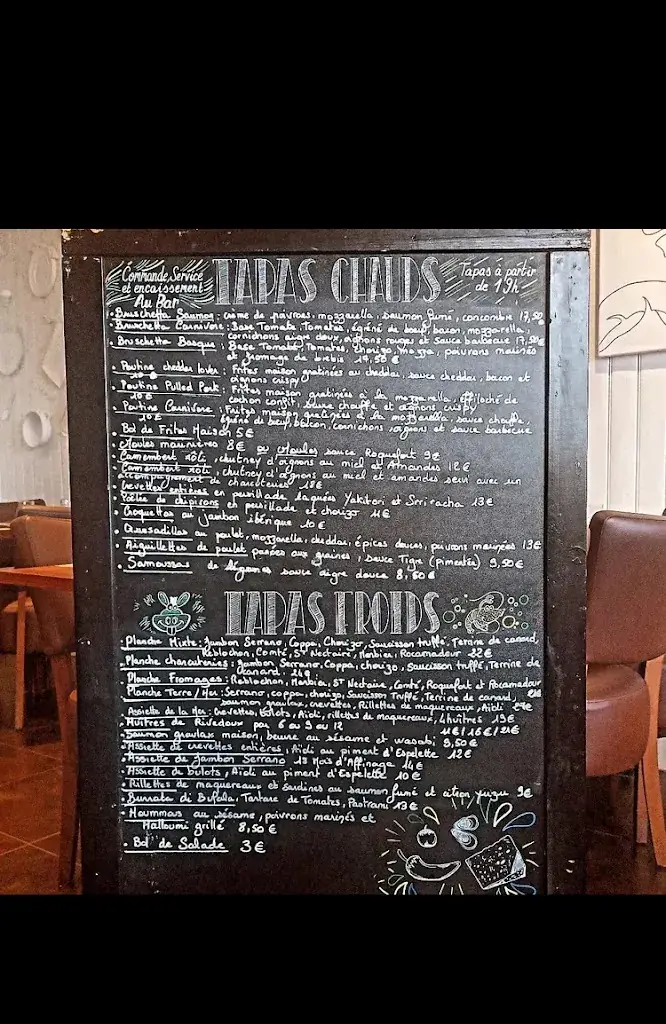 Commande Service
et encaissement
Au Bar
TAPAS CHAUDS
Tapas à partir
de 19h
• Bruschetta Saumon : crème de poivrons, mozzarella, saumon fumé, concombre 17,50
• Bruschetta Carnivore : Base Tomate, Tomates, égréné de boeuf, bacon, mozzarella,
cornichons aigre doux, oignons rouges et sauce barbecue 17,50€
• Bruschetta Basque : Base Tomate, Tomates, chorizo, mozza, poivrons marinés
et fromage de brebis 17,50 €
• Poutine cheddar lover : Frites maison gratinées au cheddar, sauce cheddar, bacon et
10 € oignons crispy
• Poutine Pulled Pork : Frites maison gratinées à la mozzarella, effiloché de
10 € cochon confit, sauce chauffe et oignons crispy
• Poutine Carnivore : Frites maison gratinées à la mozzarella, sauce chauffe,
10 € égréné de boeuf, bacon, cornichons, oignons et sauce barbecue
• Bol de Frites Maison 5€
• Moules marinières 8€ ou Moules sauce Roquefort 9€
• Camembert rôti, chutney d'oignons au miel et Amandes 12€
• Camembert rôti, chutney d'oignons au miel et amandes servi avec un
accompagnement de charcuteries 18€
• Crevettes entières en persillade laquées Yakitori et Sriracha 13€
• Poêlée de chipirons en persillade et chorizo 11€
• Croquettes au jambon ibérique 10€
• Quesadillas au poulet, mozzarella, cheddar, épices douces, poivrons marinés 13€
• Aiguillettes de poulet panées aux graines, sauce Tigre (pimentée) 9,50€
• Samoussas de légumes sauce aigre douce 8,50€
TAPAS FROIDS
• Planche Mixte : Jambon Serrano, Coppa, Chorizo, Saucisson truffé, Terrine de canard,
Reblochon, Comté, St Nectaire, Morbier, Rocamadour 22€
• Planche charcuteries : Jambon Serrano, Coppa, chorizo, Saucisson truffé, Terrine de
canard.
• Planche Fromages : Reblochon, Morbier, St Nectaire, Comté, Roquefort et Rocamadour
• Planche Terre / Mer : Serrano, coppa, chorizo, Saucisson Truffé, Terrine de canard,
saumon gravlax, crevettes, Rillettes de maquereaux, Aïoli
• Assiette de la Mer : Crevettes, Bulots, Aïoli, rillettes de maquereaux, 4 huîtres 19€
• Huîtres de Rivedoux par 6 ou 9 ou 12
11€ / 16€ / 21€
• Saumon gravlax maison, beurre au sésame et wasabi 9,50€
• Assiette de crevettes entières, Aïoli au piment d'Espelette 12€
• Assiette de Jambon Serrano Mois d'Affinage 14€
• Assiette de bulots, Aïoli au piment d'Espelette 10€
• Rillettes de maquereaux et sardines au saumon fumé et citron yuzu 9€
• Burrata di Bufala, Tartare de Tomates, Pastrami 13€
• Hoummous au sésame, poivrons marinés et
Halloumi grillé 8,50€
• Bol de Salade 3€